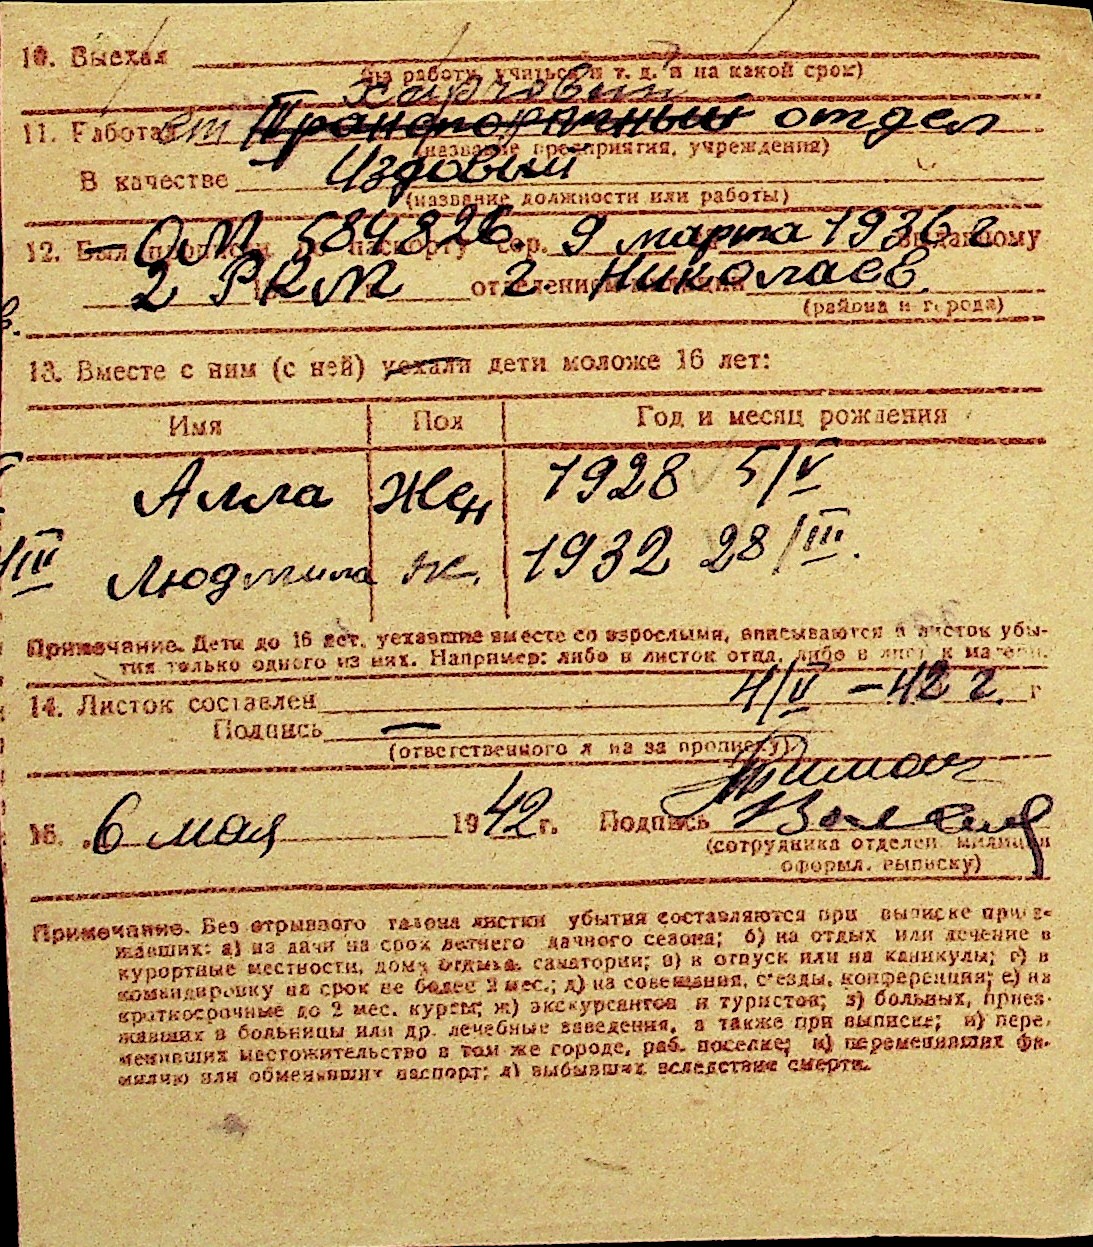 10. Выехал
(на работу, учиться и т. д. и на какой срок)
харчовий
11. Работал Транспортный отдел
(название предприятия, учреждения)
В качестве Издовый
(название должности или работы)
12. Был прописан по паспорту сер. 584826 9 марта 1936 г выданному
2 РКМ отделением милиции г. Николаев.
(района и города)
13. Вместе с ним (с ней) уехали дети моложе 16 лет:
Имя Пол Год и месяц рождения
Алла Жен 1928 5/V
/III Людмила ж. 1932 28/III.
Примечание. Дети до 16 лет, уехавшие вместе со взрослыми, вписываются в листок убы-
тия только одного из них. Например: либо в листок отца, либо в листок матери.
14. Листок составлен 4/V – 42 г. г
Подпись —
(ответственного лица за прописку)
15. 6 мая 1942 г. Подпись
(сотрудника отделен. милиции
оформл. выписку)
Примечание. Без отрывного талона листки убытия составляются при выписке приез-
жавших: а) из дачи на срок летнего дачного сезона; б) на отдых или лечение в
курортные местности, дома отдыха, санатории; в) в отпуск или на каникулы; г) в
командировку на срок не более 2 мес.; д) на совещания, съезды, конференции; е) на
краткосрочные до 2 мес. курсы; ж) экскурсантов и туристов; з) больных, приез-
жавших в больницы или др. лечебные заведения, а также при выписке; и) пере-
менивших местожительство в том же городе, раб. поселке; к) переменивших фа-
милию или обменявших паспорт; л) выбывших вследствие смерти.